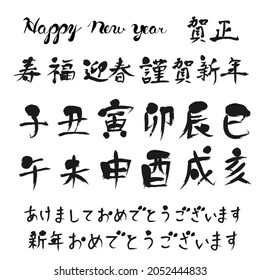 Happy New year 賀正
寿福迎春謹賀新年
子丑寅卯辰巳
午未申酉戌亥
あけましておめでとうございます
新年おめでとうございます
www.shutterstock.com · 2052444833